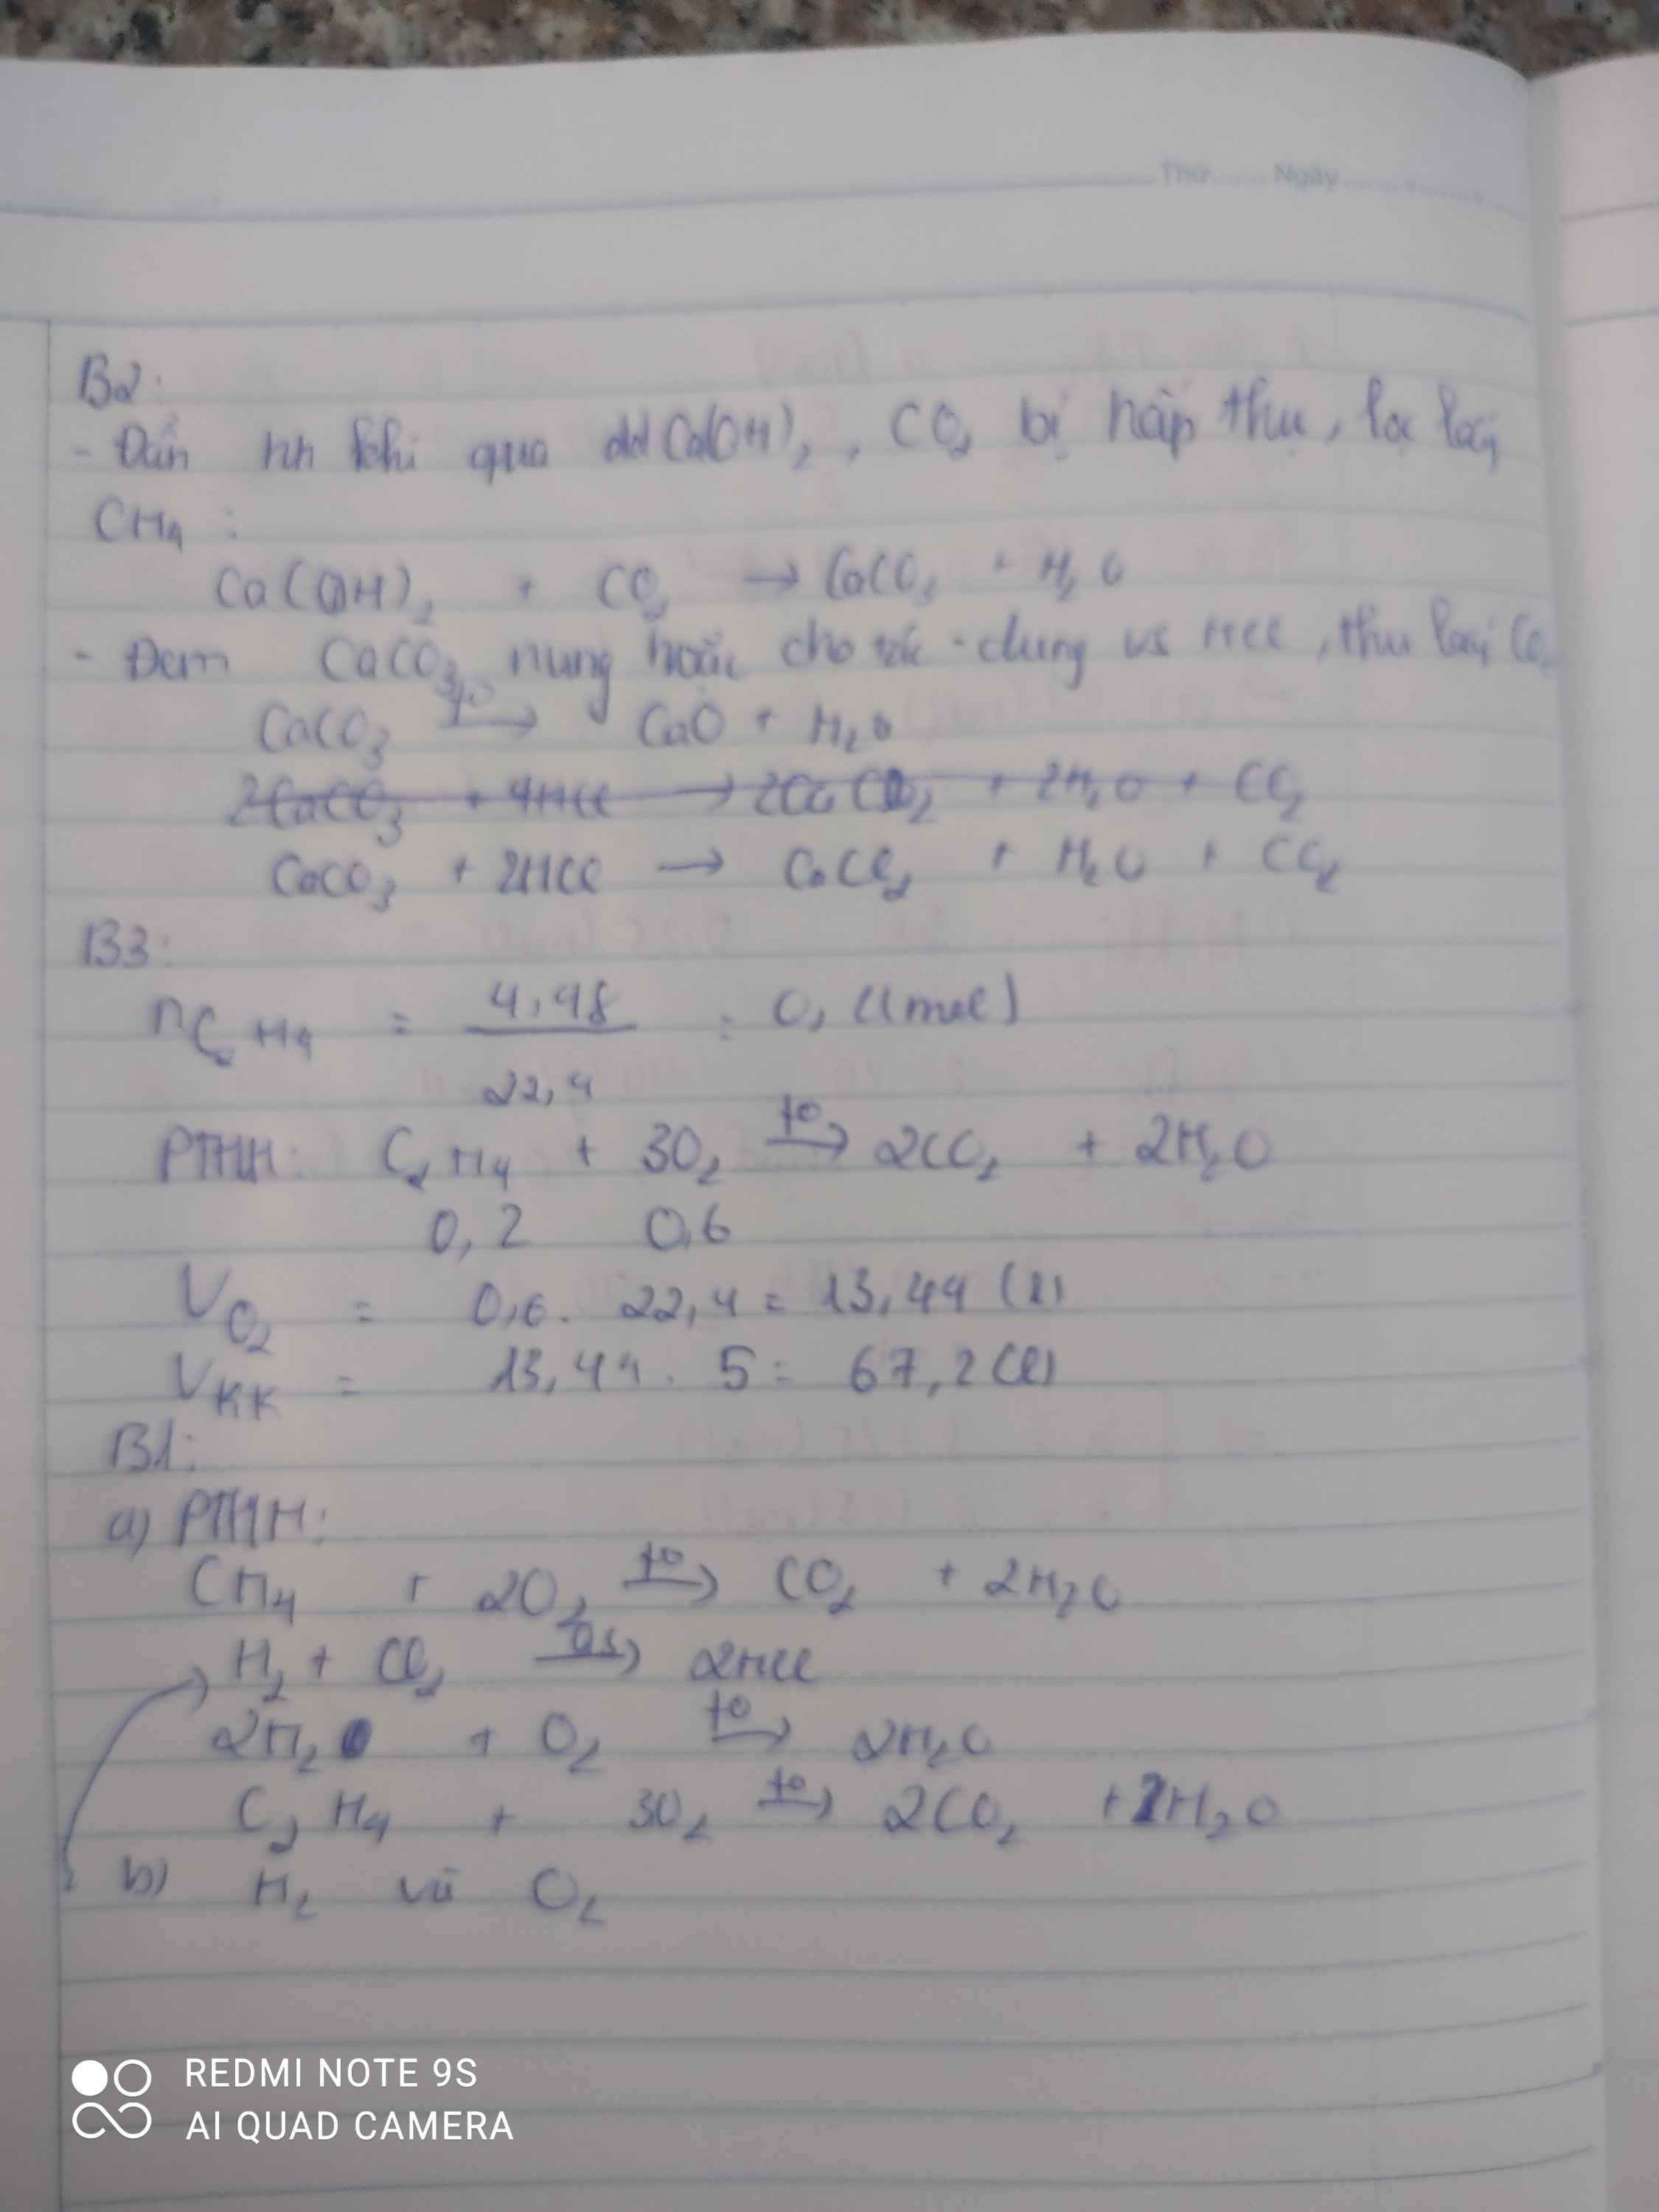 Thứ...... Ngày..............
B2:
- Dẫn hh khí qua dd Ca(OH)₂, CO₂ bị hấp thụ, lọc lấy
CH₄ :
Ca(OH)₂ + CO₂ → CaCO₃ + H₂O
- Đem CaCO₃ nung hoặc cho tác dụng vs HCl, thu lấy CO₂
CaCO₃ t°→ CaO + H₂O
2CaCO₃ + 4HCl → 2CaCO₂ + 2H₂O + CO₂
CaCO₃ + 2HCl → CaCl₂ + H₂O + CO₂
B3:
nC₂H₄ = 4,48 / 22,4 = 0, (mol)
PTHH: C₂H₄ + 3O₂ t°→ 2CO₂ + 2H₂O
0,2 0,6
V O₂ = 0,6. 22,4 = 13,44 (l)
V KK = 13,44 . 5 = 67,2 (l)
B1:
a) PTHH:
CH₄ + 2O₂ t°→ CO₂ + 2H₂O
H₂ + Cl₂ as→ 2HCl
2H₂ + O₂ t°→ 2H₂O
C₂H₄ + 3O₂ t°→ 2CO₂ + 2H₂O
b) H₂ và O₂
REDMI NOTE 9S
AI QUAD CAMERA